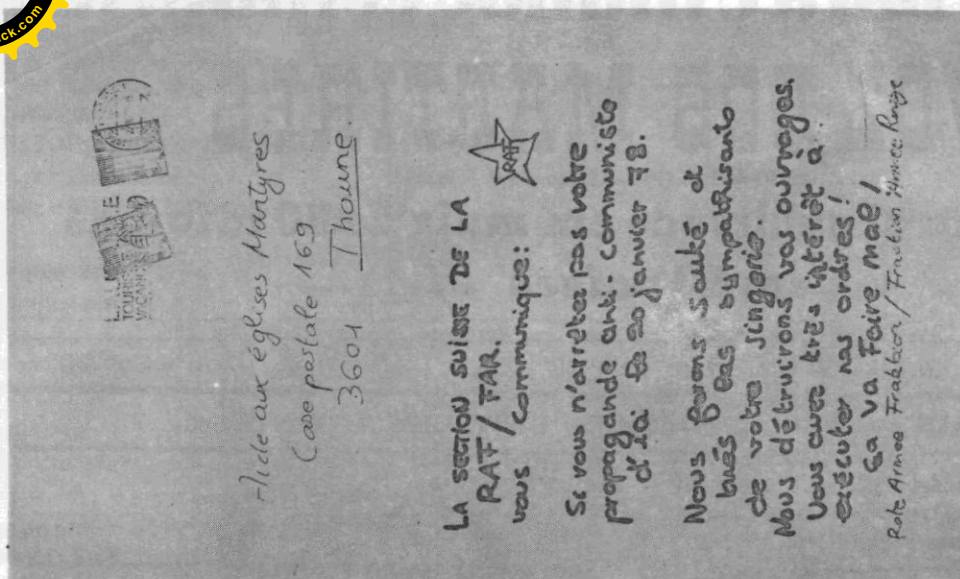 ck.com
TOURIS
Aide aux églises Martyres
Case postale 169
3601 Thoune.
LA SECTION SUISSE DE LA
RAF / FAR.
RAF
vous communique:
Si vous n'arrêtez pas votre
propagande anti-communiste
d'ici le 20 janvier 78.
Nous ferons sauté et
tués les sympathisants
de votre singerie.
Nous détruirons vos ouvrages.
Vous avez très intérêt à
exécuter nos ordres!
Ça va Faire mal!
Rote Armee Fraktion / Fraction Armee Rouge